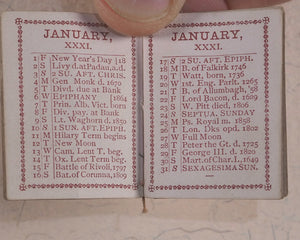 JANUARY,
XXXI.
1 F New Year's Day
2 S Livy d. at Padua, a.d.
3 S 2 SU. AFT. CHRIS.
4 M Gen Monk d. 1670
5 T Divid. due at Bank
6 W EPIPHANY
7 T Prin. Alb. Vict. born
8 F Div. pay. at Bank
9 S Lt. Waghorn d. 1850
10 S 1 SUN. AFT. EPIPH.
11 M Hilary Term begins
12 T New Moon
13 W Cam. Lent T. beg.
14 T Ox. Lent Term beg.
15 F Battle of Rivoli, 1797
16 S Bat. of Corunna, 1809
JANUARY,
XXXI.
17 S 2 SU. AFT. EPIPH.
18 M B. of Falkirk 1746
19 T Watt, born, 1736
20 W 1st. Eng. Parlt. 1265
21 T B. of Allumbagh, '58
22 F Lord Bacon, d.
23 S W. Pitt died, 1806
24 S SEPTUA. SUNDAY
25 M Ps. Royal m. 1858
26 T Lon. Dks opd. 1802
27 W Full Moon
28 T Peter the Gt. d. 1725
29 F George III. d. 1820
30 S Mart. of Char. I., 1649
31 S SEXAGESIMA SUN.